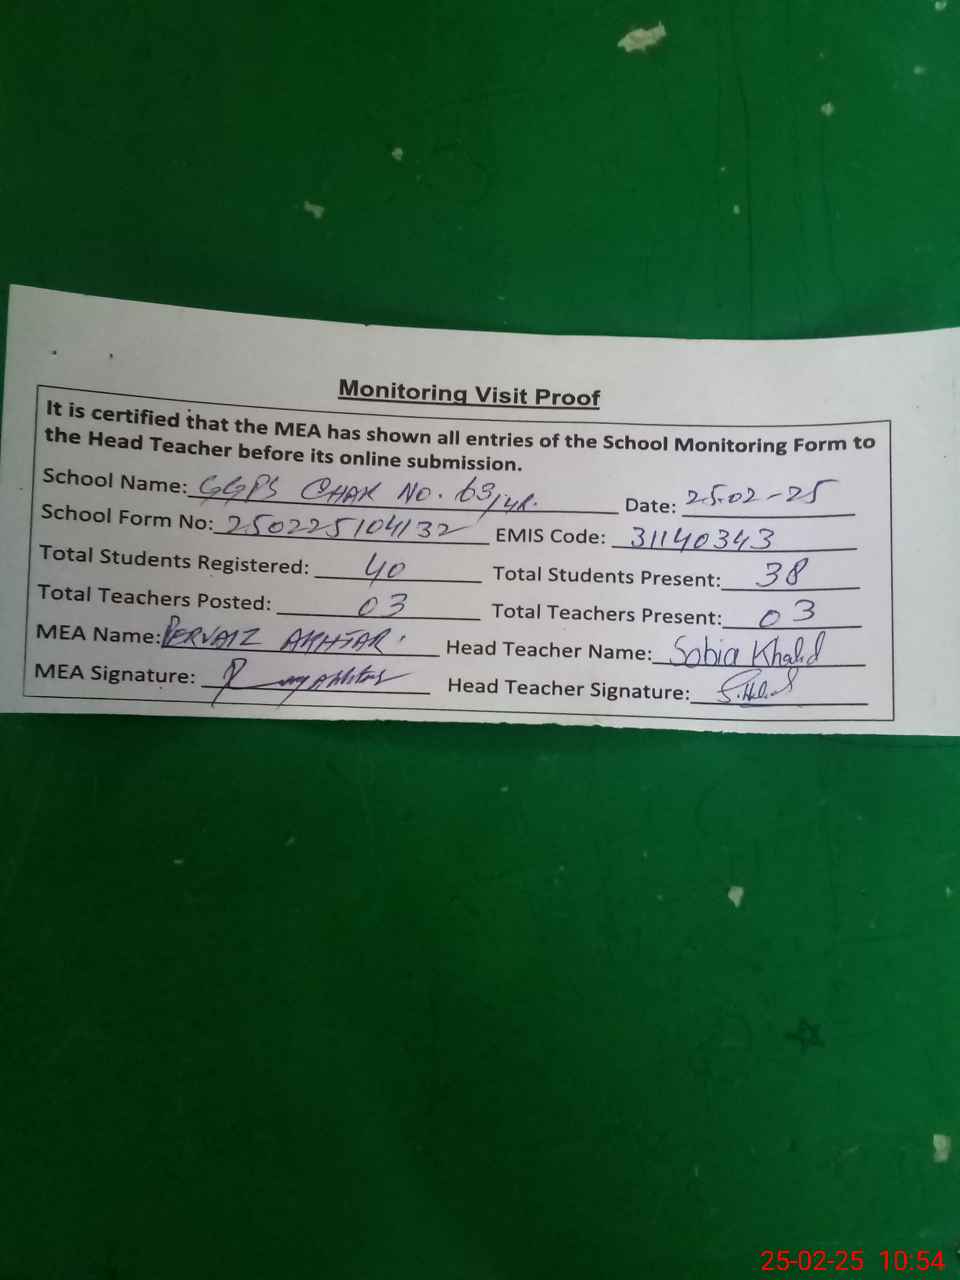 Monitoring Visit Proof
It is certified that the MEA has shown all entries of the School Monitoring Form to
the Head Teacher before its online submission.
School Name: GGPS CHAK NO. 63/4R. Date: 25.02-25
School Form No: 250225104132 EMIS Code: 31140343
Total Students Registered: 40 Total Students Present: 38
Total Teachers Posted: 03 Total Teachers Present: 03
MEA Name: PERVAIZ AKHTAR. Head Teacher Name: Sobia Khalid
MEA Signature: Head Teacher Signature:
25-02-25 10:54